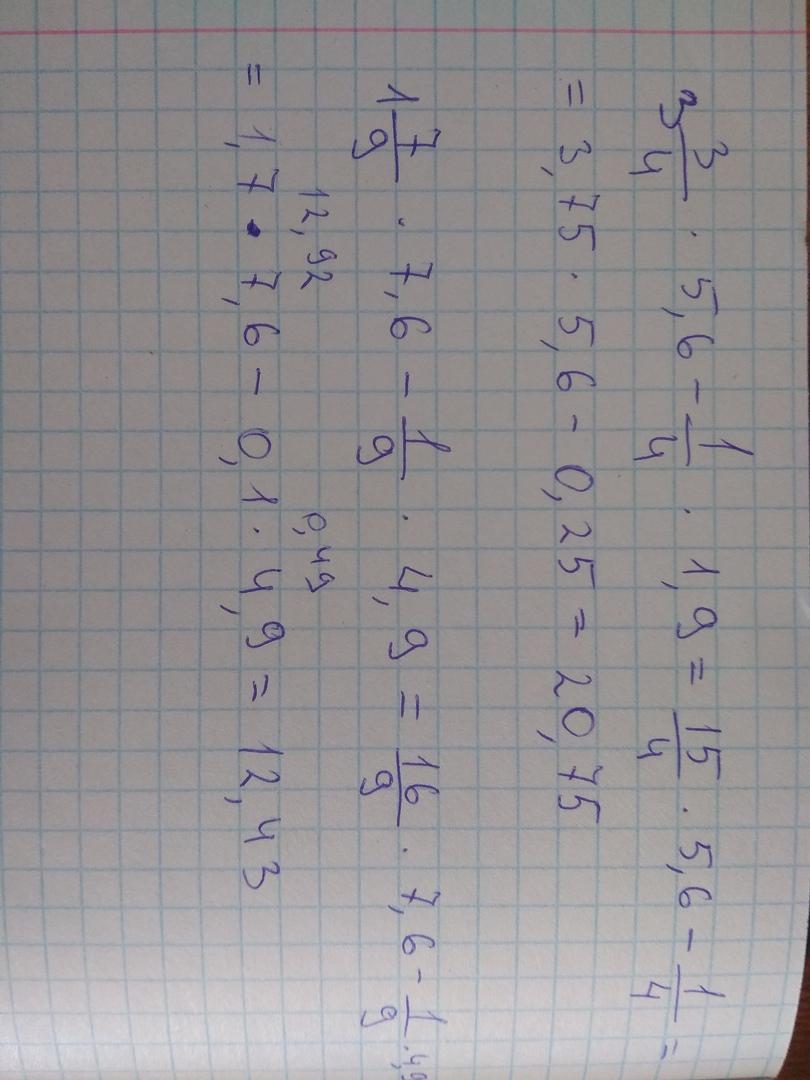 3 3/4 · 5,6 - 1/4 · 1,9 = 15/4 · 5,6 - 1/4 =
= 3,75 · 5,6 - 0,25 = 20,75
1 7/9 · 7,6 - 1/9 · 4,9 = 16/9 · 7,6 - 1/9 · 4,9
12,92 0,49
= 1,7 · 7,6 - 0,1 · 4,9 = 12,43